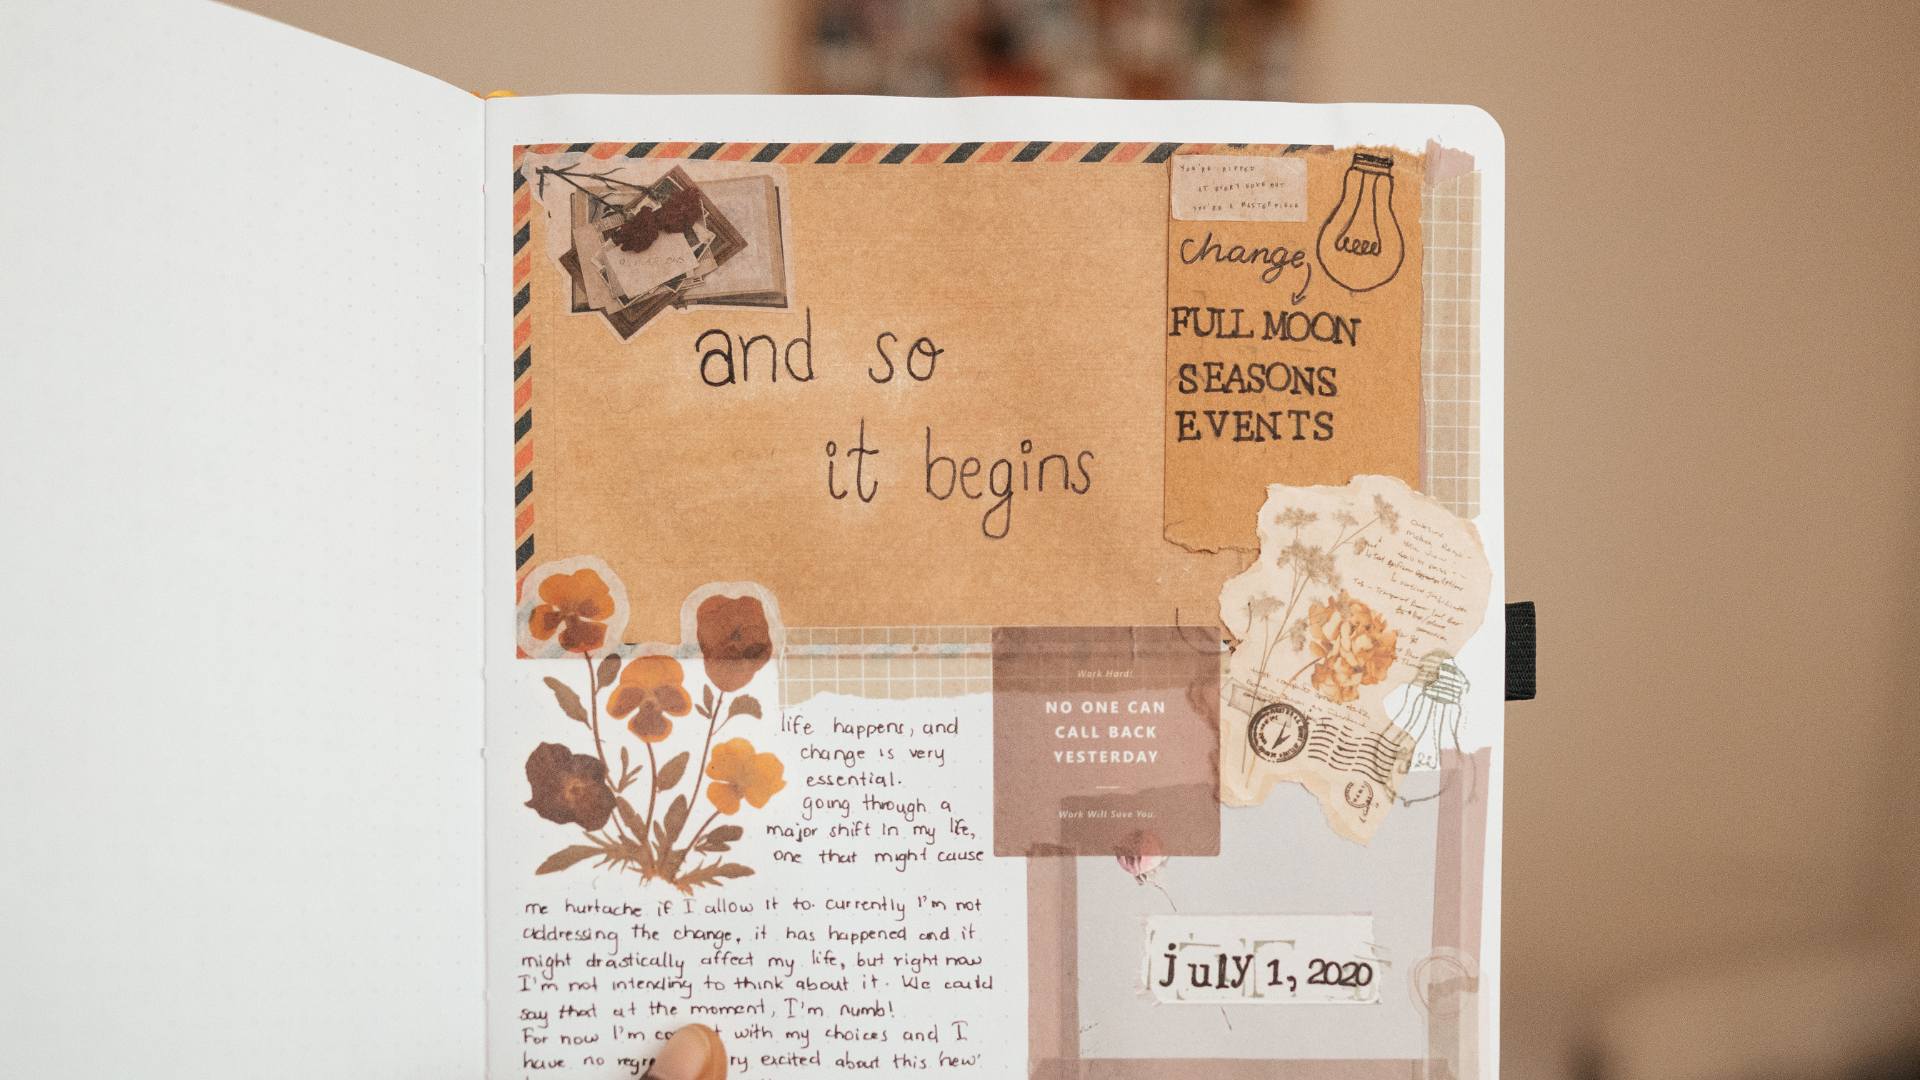 YOU'RE RIPPED
AT EVERY EDGE BUT
YOU'RE A MASTERPIECE
change
FULL MOON
SEASONS
EVENTS
and so
it begins
Work Hard!
NO ONE CAN
CALL BACK
YESTERDAY
Work Will Save You.
life happens, and
change is very
essential.
going through a
major shift in my life,
one that might cause
me hurtache if I allow it to. currently I'm not
addressing the change, it has happened and it
might drastically affect my life, but right now
I'm not intending to think about it. We could
say that at the moment, I'm numb!
For now I'm with my choices and I
have no excited about this new
july 1, 2020